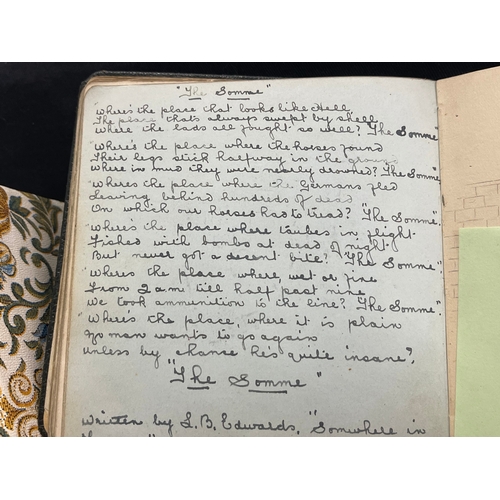 "The Somme"
"Where's the place that looks like Hell,
The place that's always swept by shell
Where the lads all fought so well? The Somme
"Where's the place where the horses found
Their legs stick halfway in the ground
Where in mud they were nearly drowned? "The Somme
"Wheres the place where the Germans fled
Leaving behind hundreds of dead
On which our horses had to tread? "The Somme".
"Where's the place where taubes in flight
Fished with bombs at dead of night
But never got a decent bite? "The Somme".
"Where's the place where, wet or fine
From 2am till half past nine
We took ammunition to the line? "The Somme".
"Where's the place, where it is plain
No man wants to go again
Unless by chance he's quite insane?,
"The Somme"
Written by S. B. Edwards, "Somwhere in